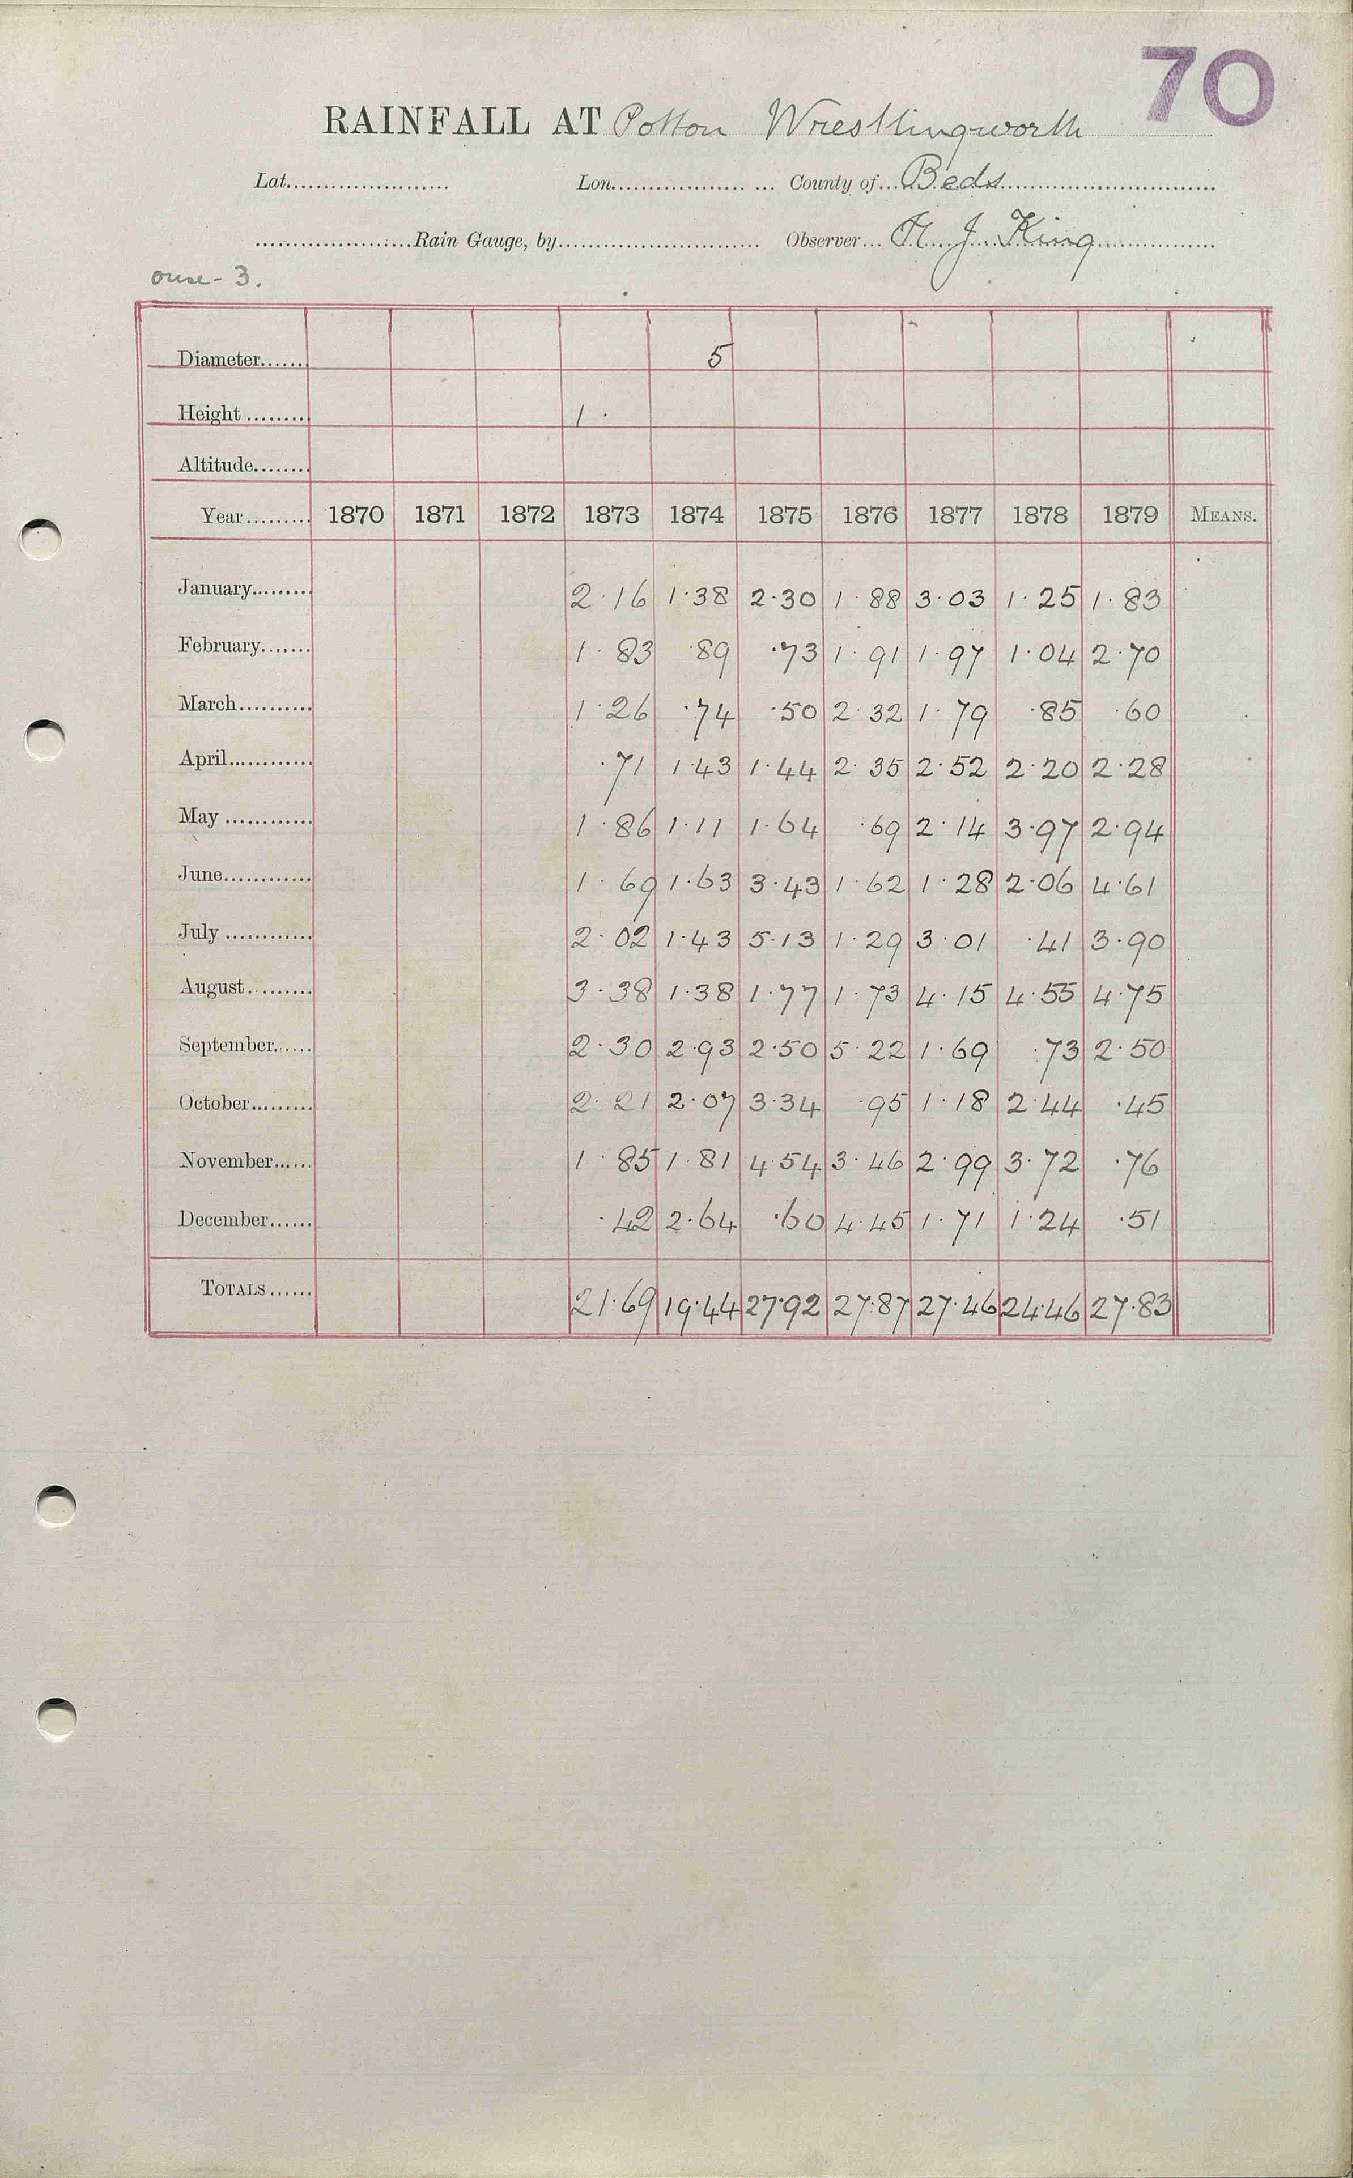 70
RAINFALL AT Potton Wrestlingworth
Lat. Lon. County of Beds
Rain Gauge, by Observer H. J. King
ouse - 3.
Diameter 5
Height 1 ·
Altitude
Year 1870 1871 1872 1873 1874 1875 1876 1877 1878 1879 MEANS.
January 2·16 1·38 2·30 1·88 3·03 1·25 1·83
February 1·83 ·89 ·73 1·91 1·97 1·04 2·70
March 1·26 ·74 ·50 2·32 1·79 ·85 ·60
April ·71 1·43 1·44 2·35 2·52 2·20 2·28
May 1·86 1·11 1·64 ·69 2·14 3·97 2·94
June 1·69 1·63 3·43 1·62 1·28 2·06 4·61
July 2·02 1·43 5·13 1·29 3·01 ·41 3·90
August 3·38 1·38 1·77 1·73 4·15 4·55 4·75
September 2·30 2·93 2·50 5·22 1·69 ·73 2·50
October 2·21 2·07 3·34 ·95 1·18 2·44 ·45
November 1·85 1·81 4·54 3·46 2·99 3·72 ·76
December ·42 2·64 ·60 4·45 1·71 1·24 ·51
TOTALS 21·69 19·44 27·92 27·87 27·46 24·46 27·83